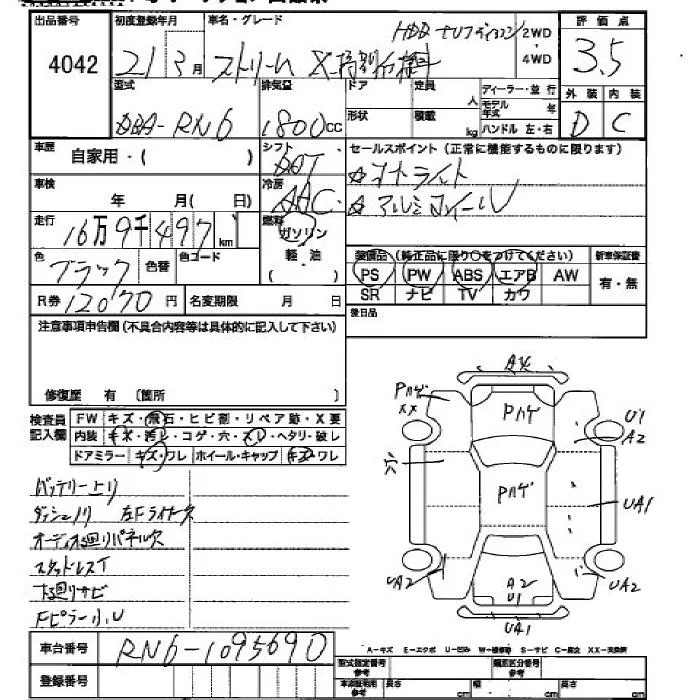 出品番号 初度登録年月 車名・グレード HDDナビエディション 2WD・4WD 評価点
4042 21 3月 ストリーム X 特別仕様車 3.5
型式 排気量 ドア 定員 人 ディーラー・並行 外装 内装
DBA-RN6 1800cc 形状 積載 kg モデル年式 年 ハンドル 左・右 D C
車歴 自家用・( ) シフト セールスポイント(正常に機能するものに限ります)
車検 年 月( 日) 冷房 AAC オートライト
アルミホイール
走行 16万9千497km 燃料 ガソリン
軽・油
( )
色 ブラック 色替 色コード
装備品(純正品に限り○をつけてください) 新車保証書
PS PW ABS エアB AW 有・無
SR ナビ TV カワ
R券 12070円 名変期限 月 日
後日品
注意事項申告欄(不具合内容等は具体的に記入して下さい)
修復歴 有 〔箇所
検査員記入欄 FW キズ・飛石・ヒビ割・リペア跡・X要
内装 キズ・汚レ・コゲ・穴・スレ・ヘタリ・破レ
ドアミラー キズ・ワレ ホイール・キャップ キズ・ワレ
バッテリー上り
ダッシュノリ 左Fライナー欠
オーディオ廻りパネル欠
スタッドレスT
下廻りサビ
Fピラー小U
Pハゲ XX
Pハゲ
U1 A2
六
Pハゲ
UA1
UA2
A2 U1
UA2
UA1
車台番号 RN6-1095690
登録番号
A-キズ E-エクボ U-凹み W-補修跡 S-サビ C-腐食 XX-交換済
型式指定番号 参考 類別区分番号 参考
車検証記載 参考 長さ cm 幅 cm 高さ cm